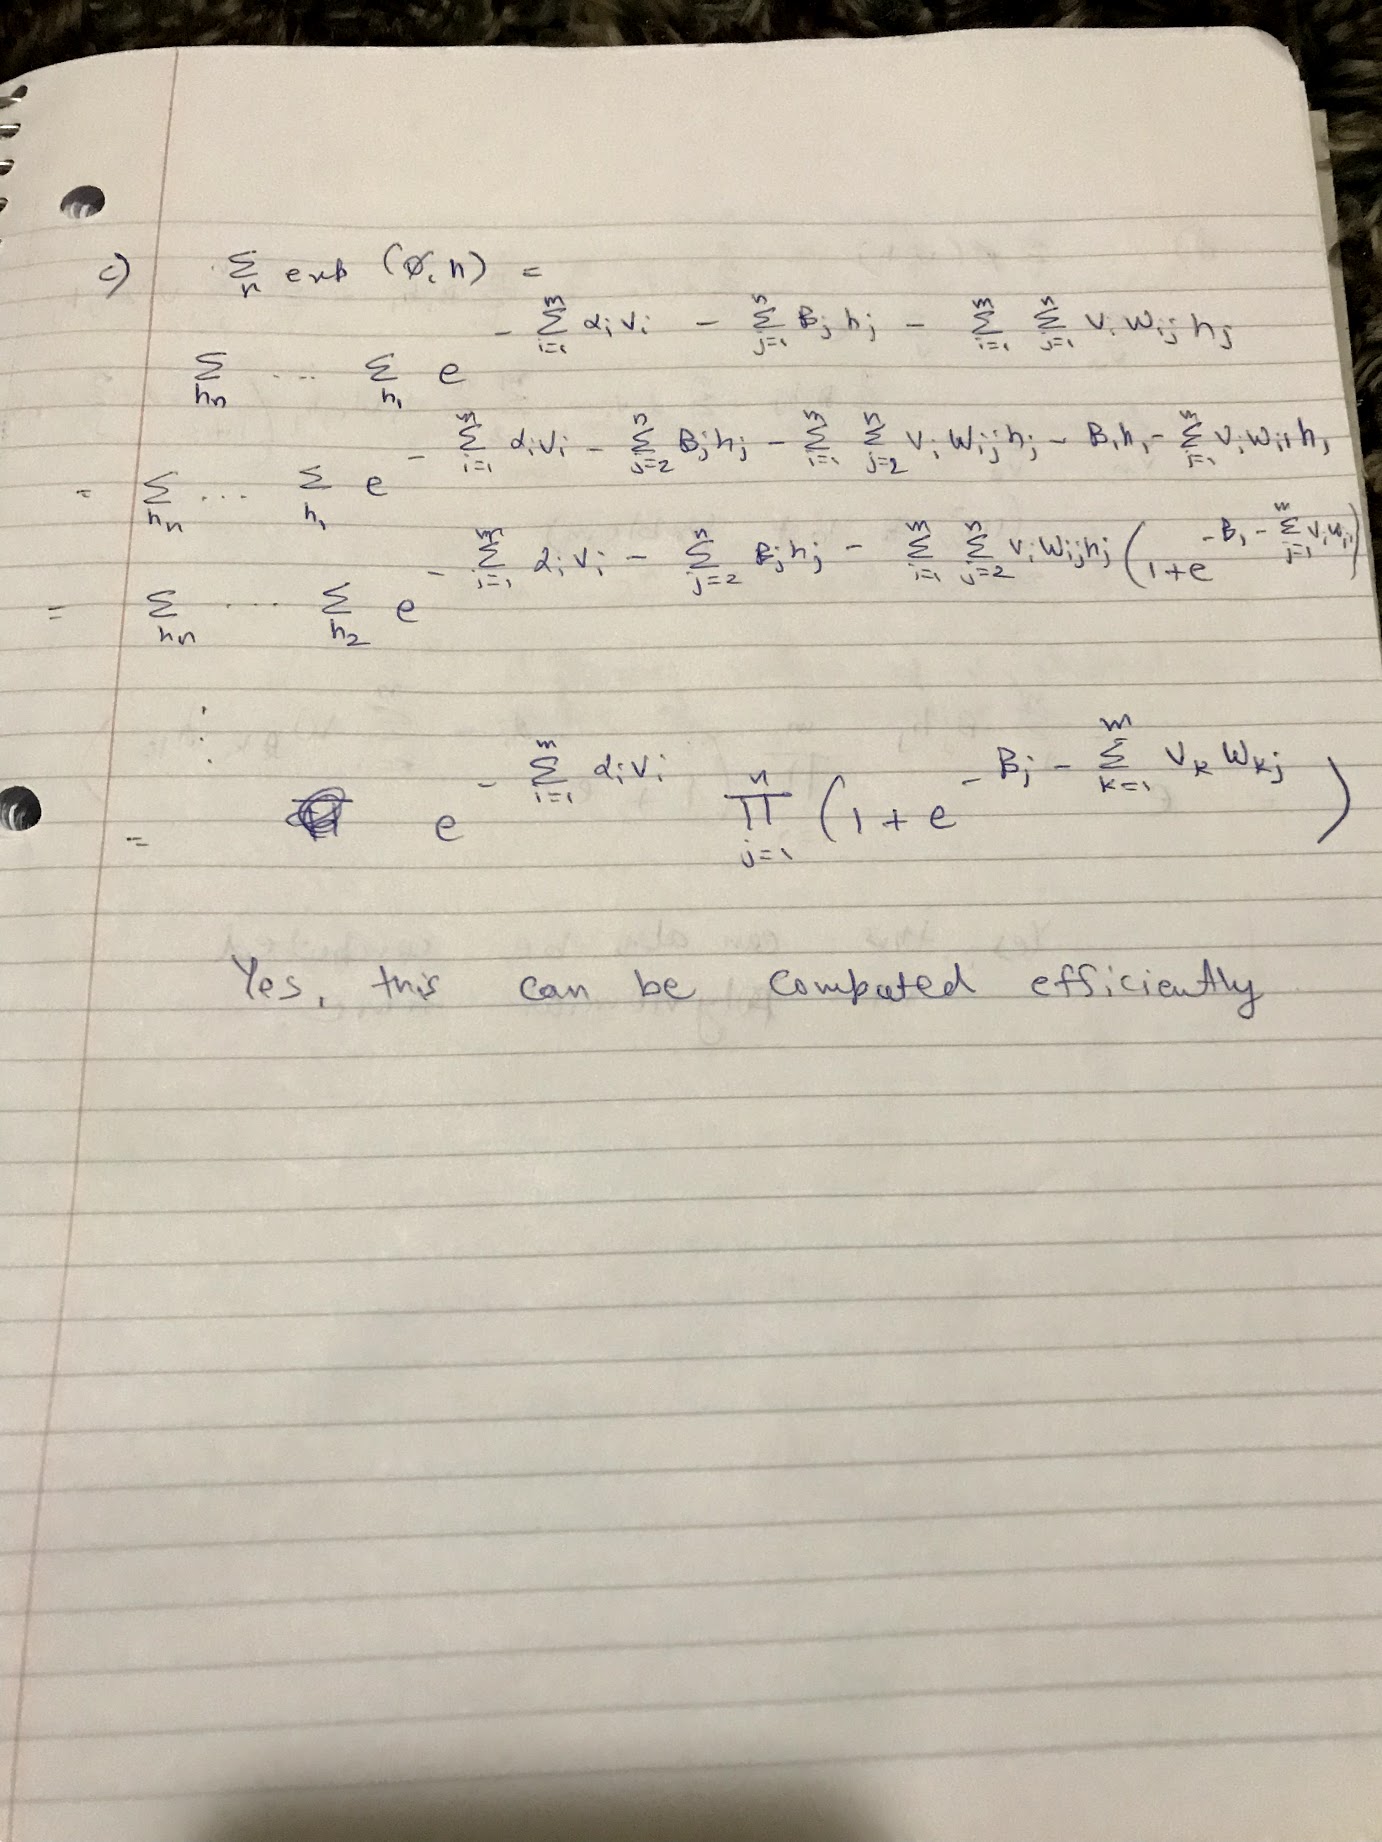 c) Σ_n exp (∅, h) =
Σ_{hn} ... Σ_{h1} e^{- Σ_{i=1}^{m} α_i v_i - Σ_{j=1}^{n} B_j h_j - Σ_{i=1}^{m} Σ_{j=1}^{n} v_i w_{ij} h_j}
= Σ_{hn} ... Σ_{h1} e^{- Σ_{i=1}^{m} α_i v_i - Σ_{j=2}^{n} B_j h_j - Σ_{i=1}^{m} Σ_{j=2}^{n} v_i w_{ij} h_j - B_1 h_1 - Σ_{j=1}^{m} v_i w_{i1} h_1}
= Σ_{hn} ... Σ_{h2} e^{- Σ_{i=1}^{m} α_i v_i - Σ_{j=2}^{n} B_j h_j - Σ_{i=1}^{m} Σ_{j=2}^{n} v_i w_{ij} h_j} (1 + e^{-B_1 - Σ_{j=1}^{m} v_i w_{i1}})
⋮
= e^{- Σ_{i=1}^{m} α_i v_i} Π_{j=1}^{n} (1 + e^{- B_j - Σ_{k=1}^{m} v_k w_{kj}})
Yes, this can be computed efficiently